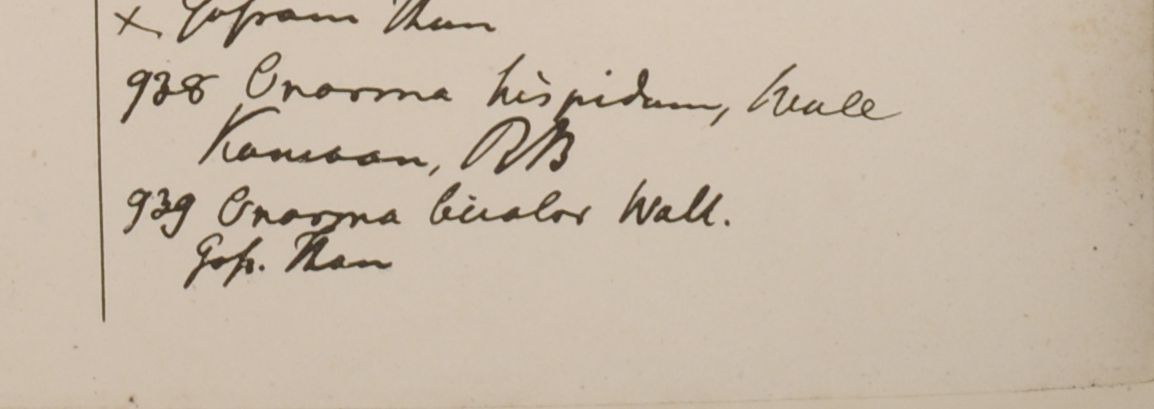 x Gosram Than
938 Onosma hispidum, Wall
Kamaon, RB
939 Onosma bicolor Wall.
Gos. Than